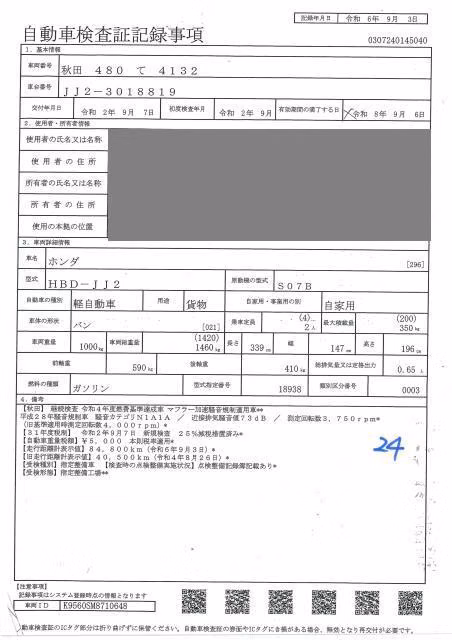 記録年月日 令和 6年 9月 3日
自動車検査証記録事項
0307240145040
1. 基本情報
車両番号 秋田 480 て 4132
車台番号 JJ2-3018819
交付年月日 令和 2年 9月 7日 初度検査年月 令和 2年 9月 有効期間の満了する日 令和 8年 9月 6日
2. 使用者・所有者情報
使用者の氏名又は名称
使用者の住所
所有者の氏名又は名称
所有者の住所
使用の本拠の位置
3. 車両詳細情報
車名 ホンダ [296]
型式 HBD-JJ2 原動機の型式 S07B
自動車の種別 軽自動車 用途 貨物 自家用・事業用の別 自家用
車体の形状 バン [021] 乗車定員 (4) 2人 最大積載量 (200) 350kg
車両重量 1000kg 車両総重量 (1420) 1460kg 長さ 339cm 幅 147cm 高さ 196cm
前軸重 590kg 後軸重 410kg 総排気量又は定格出力 0.65 L
燃料の種類 ガソリン 型式指定番号 18938 類別区分番号 0003
4. 備考
【秋田】 継続検査 令和4年度燃費基準達成車 マフラー加速騒音規制適用車**
平成28年騒音規制車 騒音カテゴリN1A1A / 近接排気騒音値73dB / 測定回転数3,750rpm*
(旧基準適用時測定回転数4,000rpm)*
【31年度税制】 令和2年9月7日 新規検査 25%減税措置済み*
【自動車重量税額】¥5,000 本則税率適用*
【走行距離計表示値】84,800km(令和6年9月3日)*
【旧走行距離計表示値】40,500km(令和4年8月26日)*
【受検種別】指定整備車 【検査時の点検整備実施状況】点検整備記録簿記載あり*
【受検形態】指定整備工場**
24
【注意事項】
記録事項はシステム登録時点の情報となります
車両ID K9560SM8710648
自動車検査証のICタグ部分は折り曲げずに保管ください。自動車検査証の券面やICタグにき損がある場合、無効となり再交付が必要です。